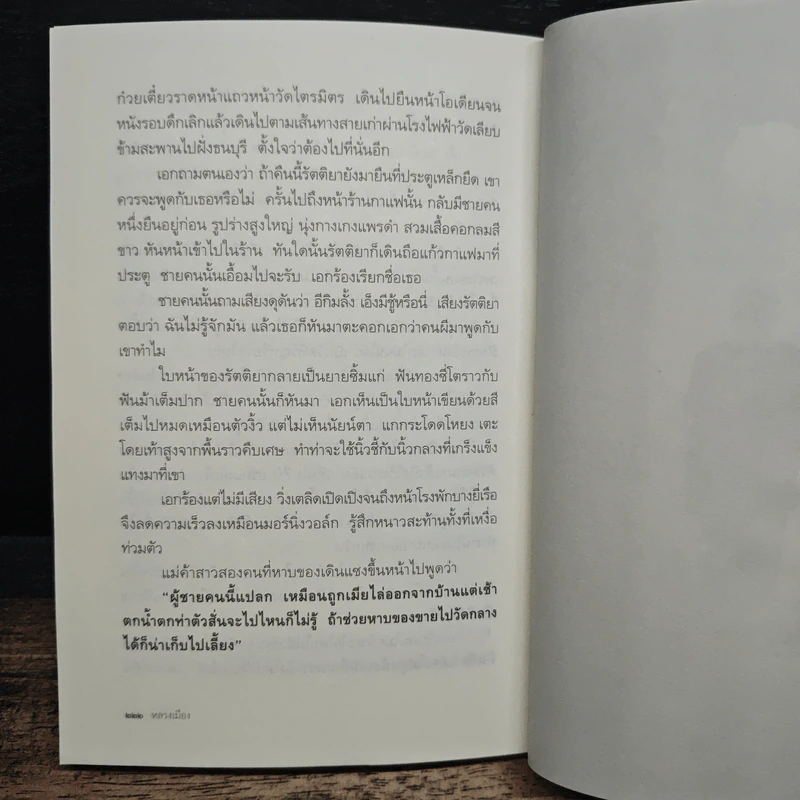 ก๋วยเตี๋ยวราดหน้าแถวหน้าวัดไตรมิตร เดินไปยืนหน้าโอเดียนจน
หนังรอบดึกเลิกแล้วเดินไปตามเส้นทางสายเก่าผ่านโรงไฟฟ้าวัดเลียบ
ข้ามสะพานไปฝั่งธนบุรี ตั้งใจว่าต้องไปที่นั่นอีก
เอกถามตนเองว่า ถ้าคืนนี้รัตติยายังมายืนที่ประตูเหล็กยืด เขา
ควรจะพูดกับเธอหรือไม่ ครั้นไปถึงหน้าร้านกาแฟนั้น กลับมีชายคน
หนึ่งยืนอยู่ก่อน รูปร่างสูงใหญ่ นุ่งกางเกงแพรดำ สวมเสื้อคอกลมสี
ขาว หันหน้าเข้าไปในร้าน ทันใดนั้นรัตติยาก็เดินถือแก้วกาแฟมาที่
ประตู ชายคนนั้นเอื้อมไปจะรับ เอกร้องเรียกชื่อเธอ
ชายคนนั้นถามเสียงดุดันว่า อีกิมลั้ง เอ็งมีชู้หรือนี่ เสียงรัตติยา
ตอบว่า ฉันไม่รู้จักมัน แล้วเธอก็หันมาตะคอกเอกว่าคนผีมาพูดกับ
เขาทำไม
ใบหน้าของรัตติยากลายเป็นยายซิ้มแก่ ฟันทองซี่โตราวกับ
ฟันม้าเต็มปาก ชายคนนั้นก็หันมา เอกเห็นเป็นใบหน้าเขียนด้วยสี
เต็มไปหมดเหมือนตัวงิ้ว แต่ไม่เห็นนัยน์ตา แกกระโดดโหยง เตะ
โดยเท้าสูงจากพื้นราวคืบเศษ ทำท่าจะใช้นิ้วชี้กับนิ้วกลางที่เกร็งแข็ง
แทงมาที่เขา
เอกร้องแต่ไม่มีเสียง วิ่งเตลิดเปิดเปิงจนถึงหน้าโรงพักบางยี่เรือ
จึงลดความเร็วลงเหมือนมอร์นิ่งวอล์ก รู้สึกหนาวสะท้านทั้งที่เหงื่อ
ท่วมตัว
แม่ค้าสาวสองคนที่หาบของเดินแซงขึ้นหน้าไปพูดว่า
“ผู้ชายคนนี้แปลก เหมือนถูกเมียไล่ออกจากบ้านแต่เช้า
ตกน้ำตกท่าตัวสั่นจะไปไหนก็ไม่รู้ ถ้าช่วยหาบของขายไปวัดกลาง
ได้ก็น่าเก็บไปเลี้ยง”
๒๒๒ หลวงเมือง